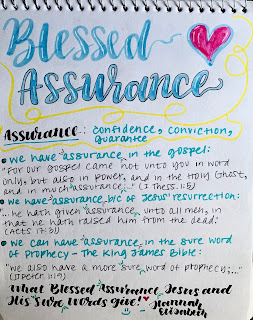 Blessed
Assurance
Assurance: confidence, conviction,
guarantee
• we have assurance in the gospel:
"For our gospel came not unto you in word
only, but also in power, and in the Holy Ghost,
and in much assurance;..." (I Thess. 1:5)
• we have assurance b/c of Jesus' resurrection:
"...he hath given assurance unto all men, in
that he hath raised him from the dead."
(Acts 17:31)
• we can have assurance in the sure word
of prophecy - The King James Bible:
"we also have a more sure word of prophecy;..."
(II Peter 1:19)
What Blessed Assurance Jesus and
His Sure Words give!
- Hannah
Elizabeth